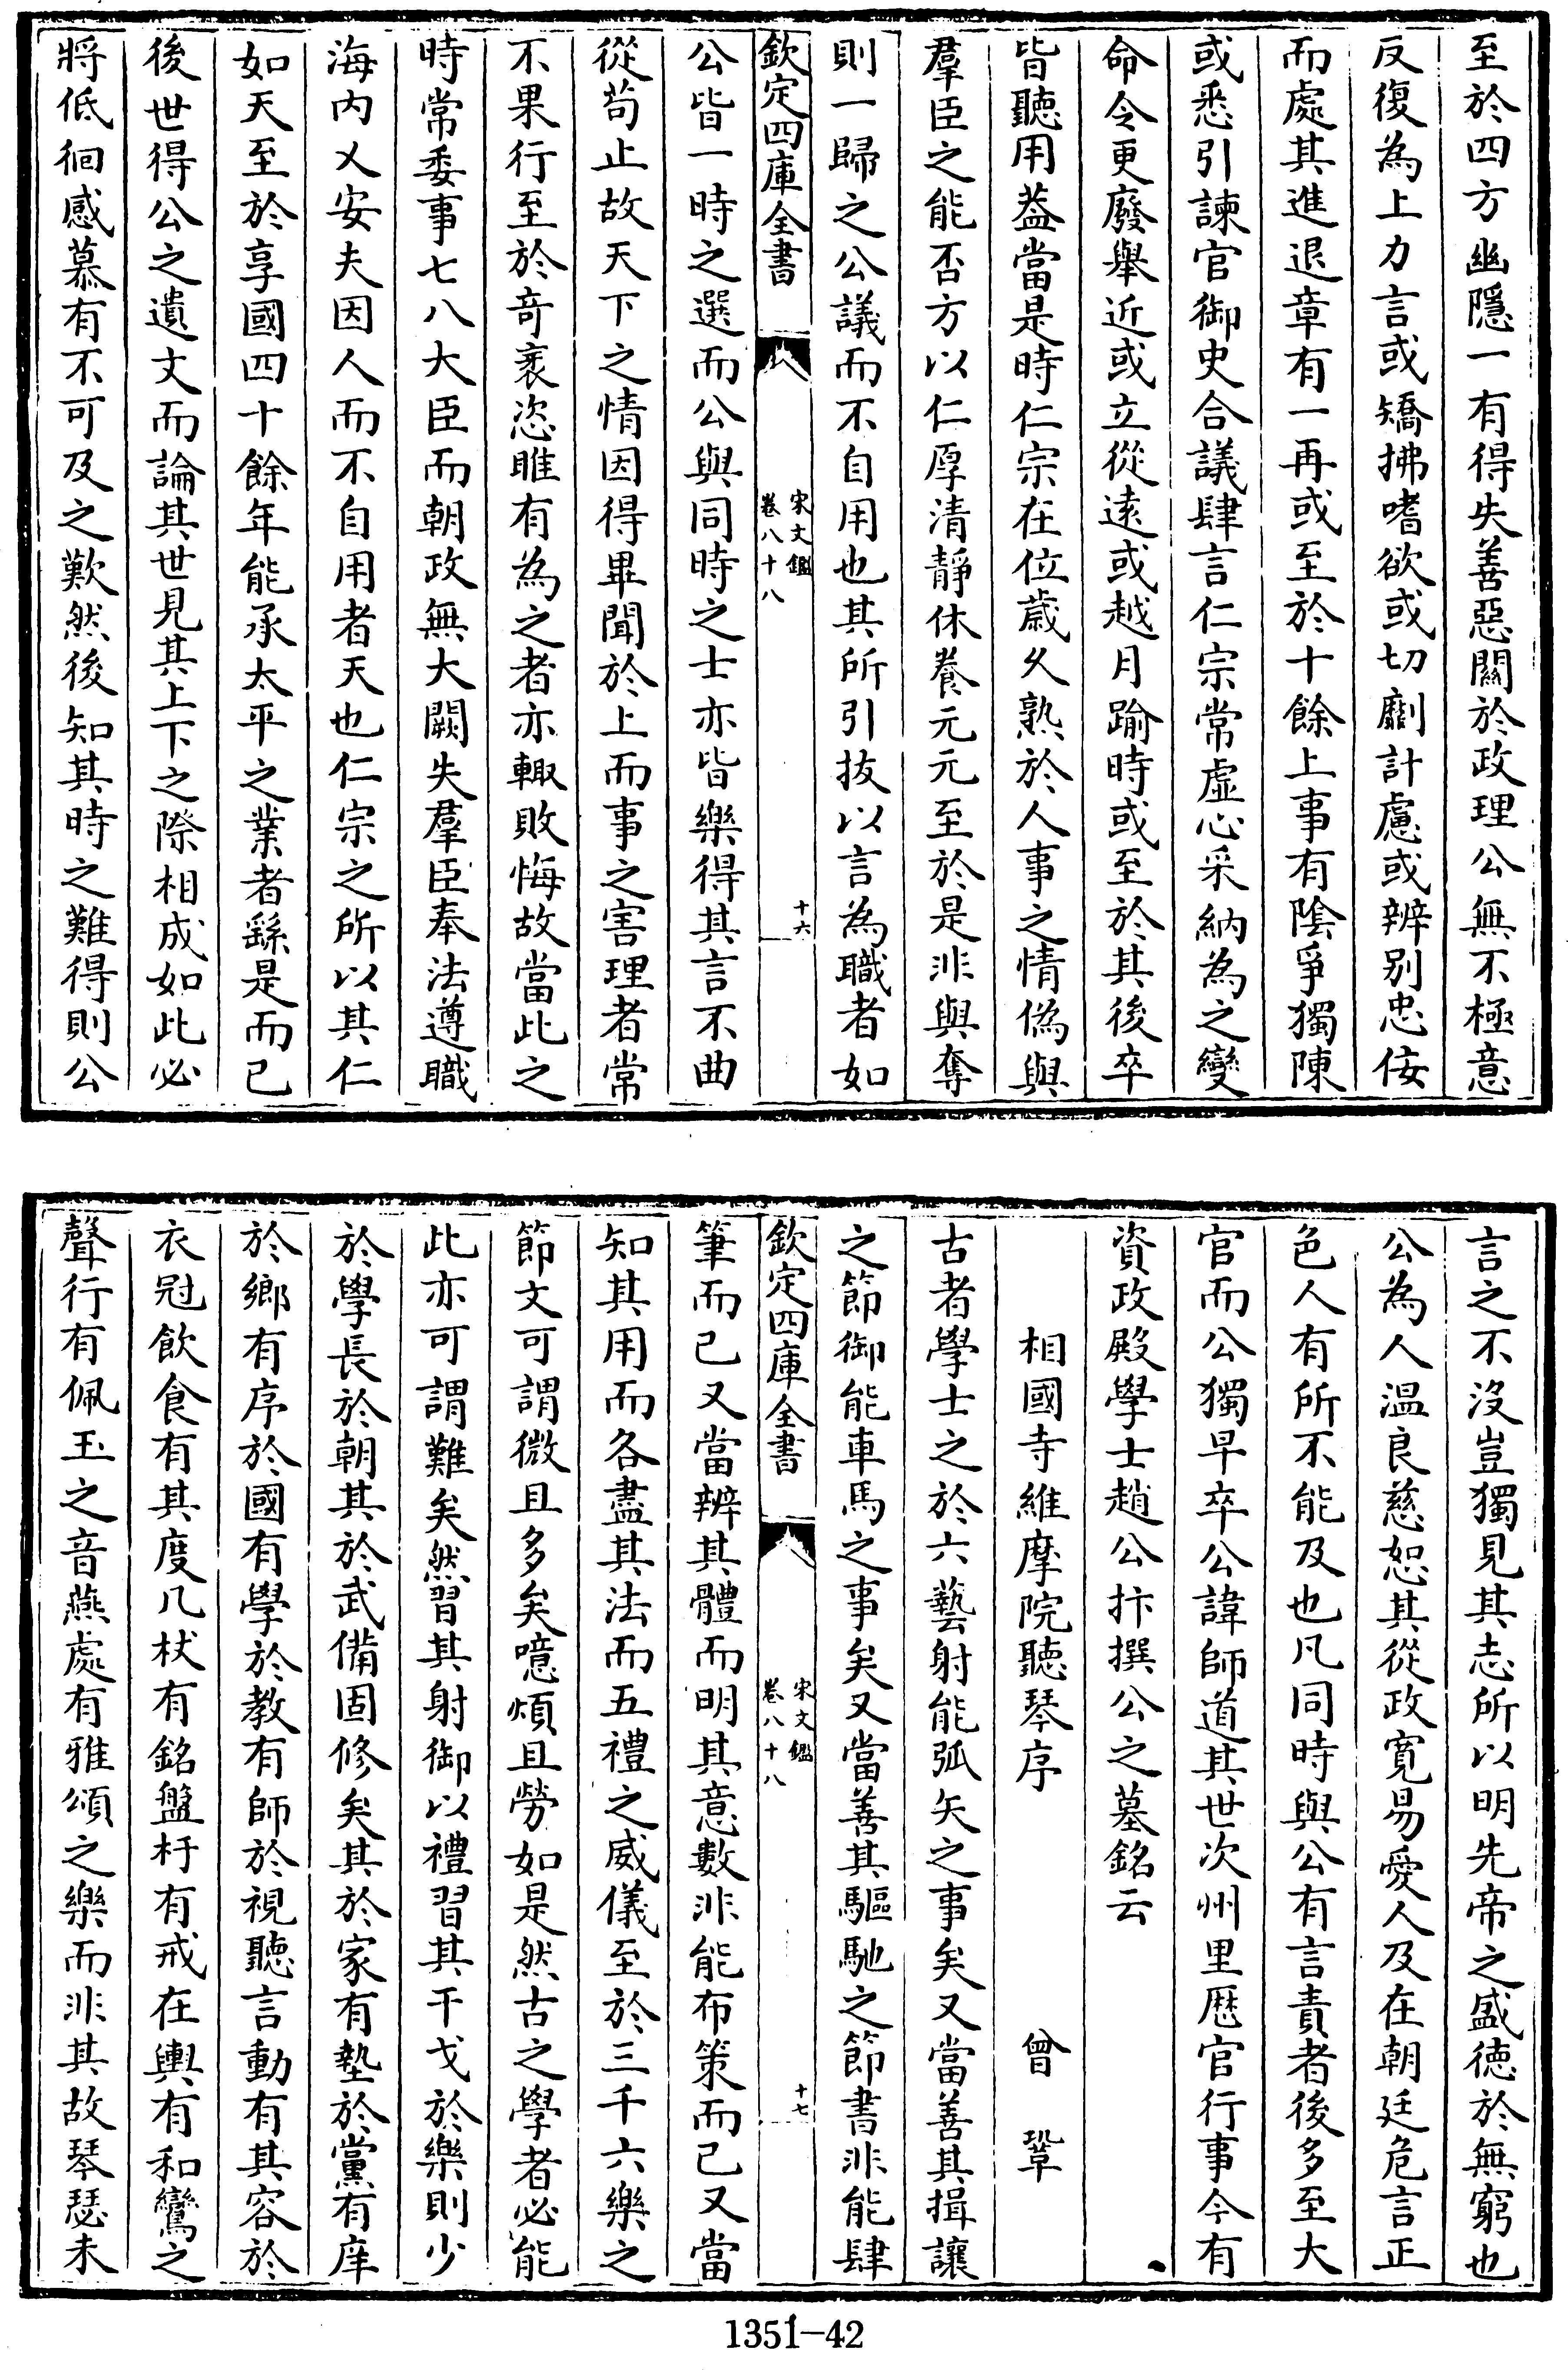 至於四方幽隱一有得失善惡關於政理公無不極意
反復為上力言或矯拂嗜欲或切劘計慮或辨别忠佞
而處其進退章有一再或至於十餘上事有隂爭獨陳
或悉引諫官御史合議肆言仁宗常虛心采納為之變
命令更廢舉近或立從逺或越月踰時或至於其後卒
皆聽用葢當是時仁宗在位歲久熟於人事之情偽與
羣臣之能否方以仁厚清靜休養元元至於是非與奪
則一歸之公議而不自用也其所引拔以言為職者如
欽定四庫全書
宋文鑑
卷八十八
十六
公皆一時之選而公與同時之士亦皆樂得其言不曲
從苟止故天下之情因得畢聞於上而事之害理者常
不果行至於奇衺恣睢有為之者亦輙敗悔故當此之
時常委事七八大臣而朝政無大闕失羣臣奉法遵職
海内乂安夫因人而不自用者天也仁宗之所以其仁
如天至於享國四十餘年能承太平之業者繇是而已
後世得公之遺文而論其世見其上下之際相成如此必
將低徊感慕有不可及之歎然後知其時之難得則公
言之不没豈獨見其志所以明先帝之盛徳於無窮也
公為人温良慈恕其從政寛易愛人及在朝廷危言正
色人有所不能及也凡同時與公有言責者後多至大
官而公獨早卒公諱師道其世次州里歴官行事今有
資政殿學士趙公抃撰公之墓銘云
相國寺維摩院聽琴序
曾鞏
古者學士之於六藝射能弧矢之事矣又當善其揖讓
之節御能車馬之事矣又當善其驅馳之節書非能肆
欽定四庫全書
宋文鑑
卷八十八
十七
筆而已又當辨其體而明其意數非能布策而已又當
知其用而各盡其法而五禮之威儀至於三千六樂之
節文可謂微且多矣噫煩且勞如是然古之學者必能
此亦可謂難矣然習其射御以禮習其干戈於樂則少
於學長於朝其於武備固修矣其於家有塾於黨有庠
於鄉有序於國有學於教有師於視聽言動有其容於
衣冠飲食有其度几杖有銘盤杅有戒在輿有和鸞之
聲行有佩玉之音燕處有雅頌之樂而非其故琴瑟未
1351-42